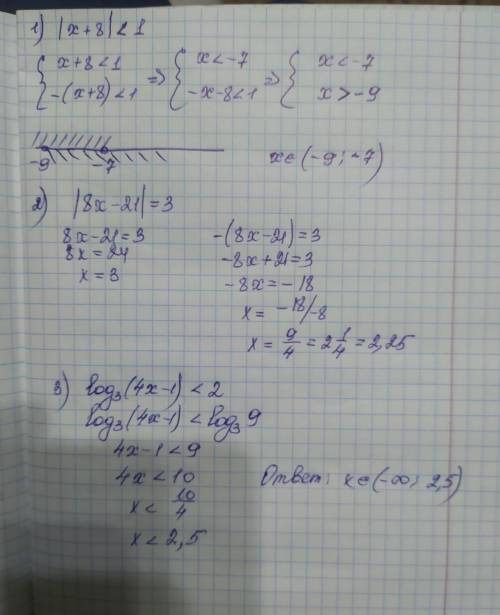 1) |x+8|<1
{ x+8<1 -(x+8)<1 => { x<-7 -x-8<1 => { x<-7 x>-9
-9 -7 x∈(-9; -7)
2) |8x-21|=3
8x-21=3
8x=24
x=3
-(8x-21)=3
-8x+21=3
-8x=-18
x= -18/-8
x= 9/4 = 2 1/4 = 2,25
3) log₃(4x-1)<2
log₃(4x-1)<log₃9
4x-1<9
4x<10
x< 10/4
x<2,5
Ответ: x∈(-∞; 2,5)